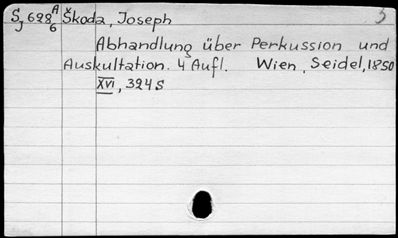 S 698 A Škoda, Joseph 5
J 6
Abhandlung über Perkussion und
Auskultation. 4 Aufl. Wien, Seidel, 1850
XVI, 394 S